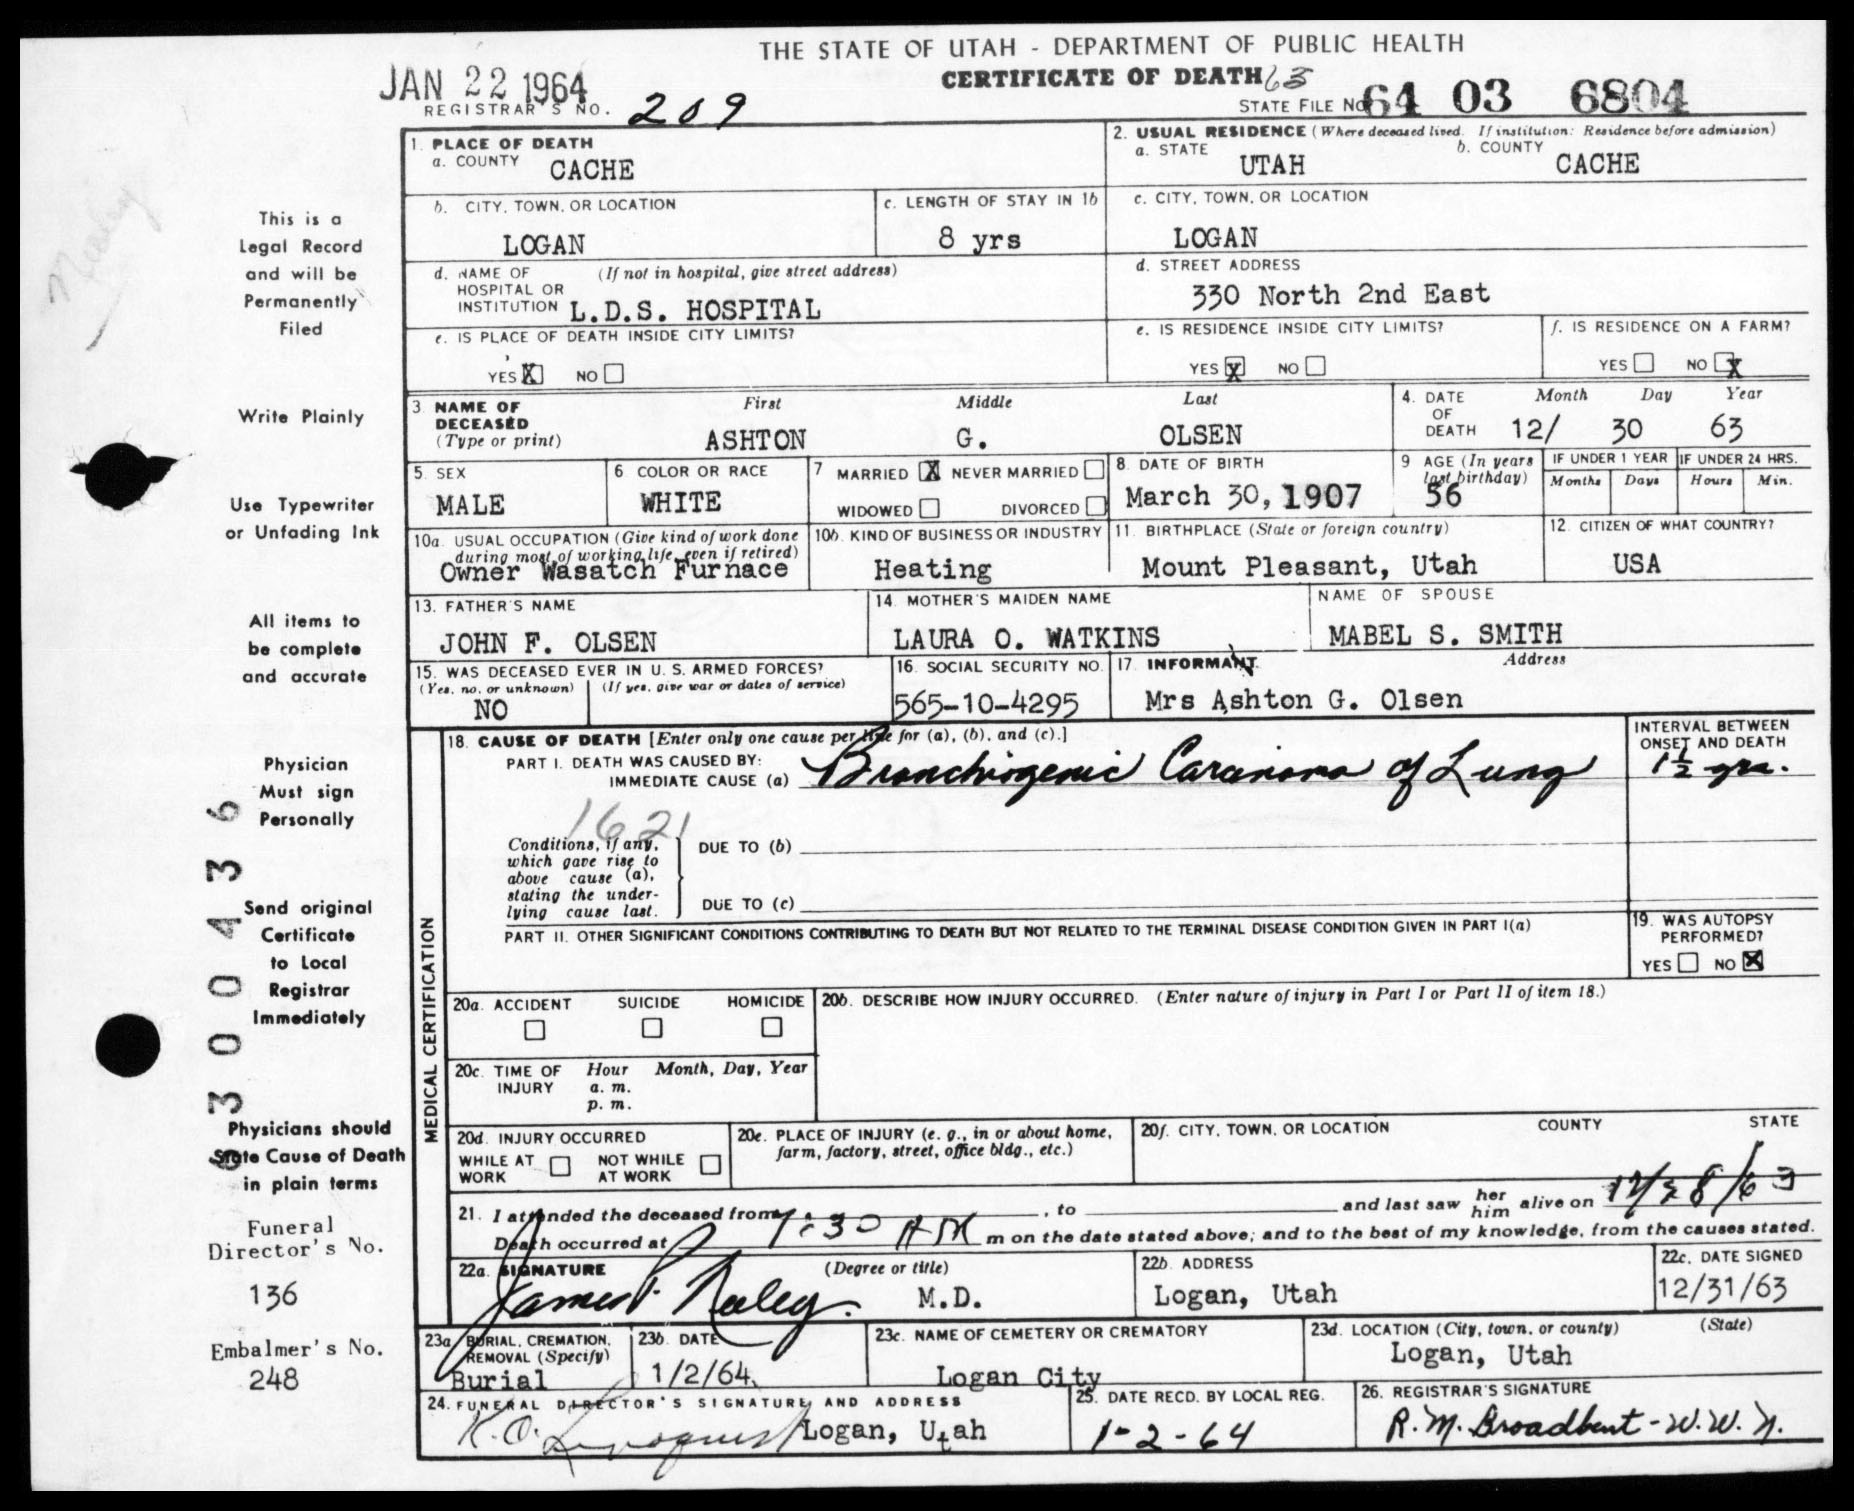 THE STATE OF UTAH - DEPARTMENT OF PUBLIC HEALTH
CERTIFICATE OF DEATH 63
JAN 22 1964
REGISTRAR'S NO. 209
STATE FILE No. 64 03 6804
This is a
Legal Record
and will be
Permanently
Filed
Write Plainly
Use Typewriter
or Unfading Ink
All items to
be complete
and accurate
Physician
Must sign
Personally
Send original
Certificate
to Local
Registrar
Immediately
Physicians should
State Cause of Death
in plain terms
Funeral
Director's No.
136
Embalmer's No.
248
1. PLACE OF DEATH
a. COUNTY CACHE
2. USUAL RESIDENCE (Where deceased lived. If institution: Residence before admission)
a. STATE UTAH b. COUNTY CACHE
b. CITY, TOWN, OR LOCATION LOGAN
c. LENGTH OF STAY IN 1b 8 yrs
c. CITY, TOWN, OR LOCATION LOGAN
d. NAME OF HOSPITAL OR INSTITUTION (If not in hospital, give street address) L.D.S. HOSPITAL
d. STREET ADDRESS 330 North 2nd East
e. IS PLACE OF DEATH INSIDE CITY LIMITS?
YES X NO
e. IS RESIDENCE INSIDE CITY LIMITS?
YES X NO
f. IS RESIDENCE ON A FARM?
YES NO X
3. NAME OF DECEASED (Type or print)
First Middle Last
ASHTON G. OLSEN
4. DATE OF DEATH Month Day Year
12/ 30 63
5. SEX MALE
6. COLOR OR RACE WHITE
7. MARRIED X NEVER MARRIED
WIDOWED DIVORCED
8. DATE OF BIRTH March 30, 1907
9. AGE (In years last birthday) 56
IF UNDER 1 YEAR Months Days
IF UNDER 24 HRS. Hours Min.
10a. USUAL OCCUPATION (Give kind of work done during most of working life, even if retired)
Owner Wasatch Furnace
10b. KIND OF BUSINESS OR INDUSTRY Heating
11. BIRTHPLACE (State or foreign country) Mount Pleasant, Utah
12. CITIZEN OF WHAT COUNTRY? USA
13. FATHER'S NAME JOHN F. OLSEN
14. MOTHER'S MAIDEN NAME LAURA O. WATKINS
NAME OF SPOUSE MABEL S. SMITH
15. WAS DECEASED EVER IN U.S. ARMED FORCES?
(Yes, no, or unknown) (If yes, give war or dates of service)
NO
16. SOCIAL SECURITY NO. 565-10-4295
17. INFORMANT Address
Mrs Ashton G. Olsen
MEDICAL CERTIFICATION
18. CAUSE OF DEATH [Enter only one cause per line for (a), (b), and (c).]
INTERVAL BETWEEN ONSET AND DEATH
PART I. DEATH WAS CAUSED BY:
IMMEDIATE CAUSE (a) Bronchiogenic Carcinoma of Lung 1½ yrs.
1621
Conditions, if any, which gave rise to above cause (a), stating the underlying cause last.
DUE TO (b)
DUE TO (c)
PART II. OTHER SIGNIFICANT CONDITIONS CONTRIBUTING TO DEATH BUT NOT RELATED TO THE TERMINAL DISEASE CONDITION GIVEN IN PART I(a)
19. WAS AUTOPSY PERFORMED?
YES NO X
20a. ACCIDENT SUICIDE HOMICIDE
20b. DESCRIBE HOW INJURY OCCURRED. (Enter nature of injury in Part I or Part II of item 18.)
20c. TIME OF INJURY Hour Month, Day, Year
a. m.
p. m.
20d. INJURY OCCURRED
WHILE AT WORK NOT WHILE AT WORK
20e. PLACE OF INJURY (e. g., in or about home, farm, factory, street, office bldg., etc.)
20f. CITY, TOWN, OR LOCATION COUNTY STATE
21. I attended the deceased from , to and last saw her him alive on 12/28/63
Death occurred at 7:30 AM m on the date stated above; and to the best of my knowledge, from the causes stated.
22a. SIGNATURE (Degree or title)
James P. M.D.
22b. ADDRESS Logan, Utah
22c. DATE SIGNED 12/31/63
23a. BURIAL, CREMATION, REMOVAL (Specify) Burial
23b. DATE 1/2/64
23c. NAME OF CEMETERY OR CREMATORY Logan City
23d. LOCATION (City, town, or county) (State)
Logan, Utah
24. FUNERAL DIRECTOR'S SIGNATURE AND ADDRESS
K.O. Logan, Utah
25. DATE RECD. BY LOCAL REG. 1-2-64
26. REGISTRAR'S SIGNATURE R. M. Broadbent - W.W.N.